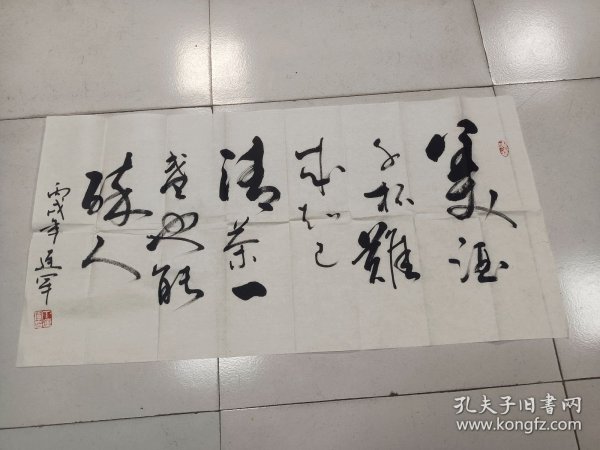 美酒
千杯难
成知己
清茶一
盏也能
醉人
丙戌年
孔夫子旧书网
www.kongfz.com